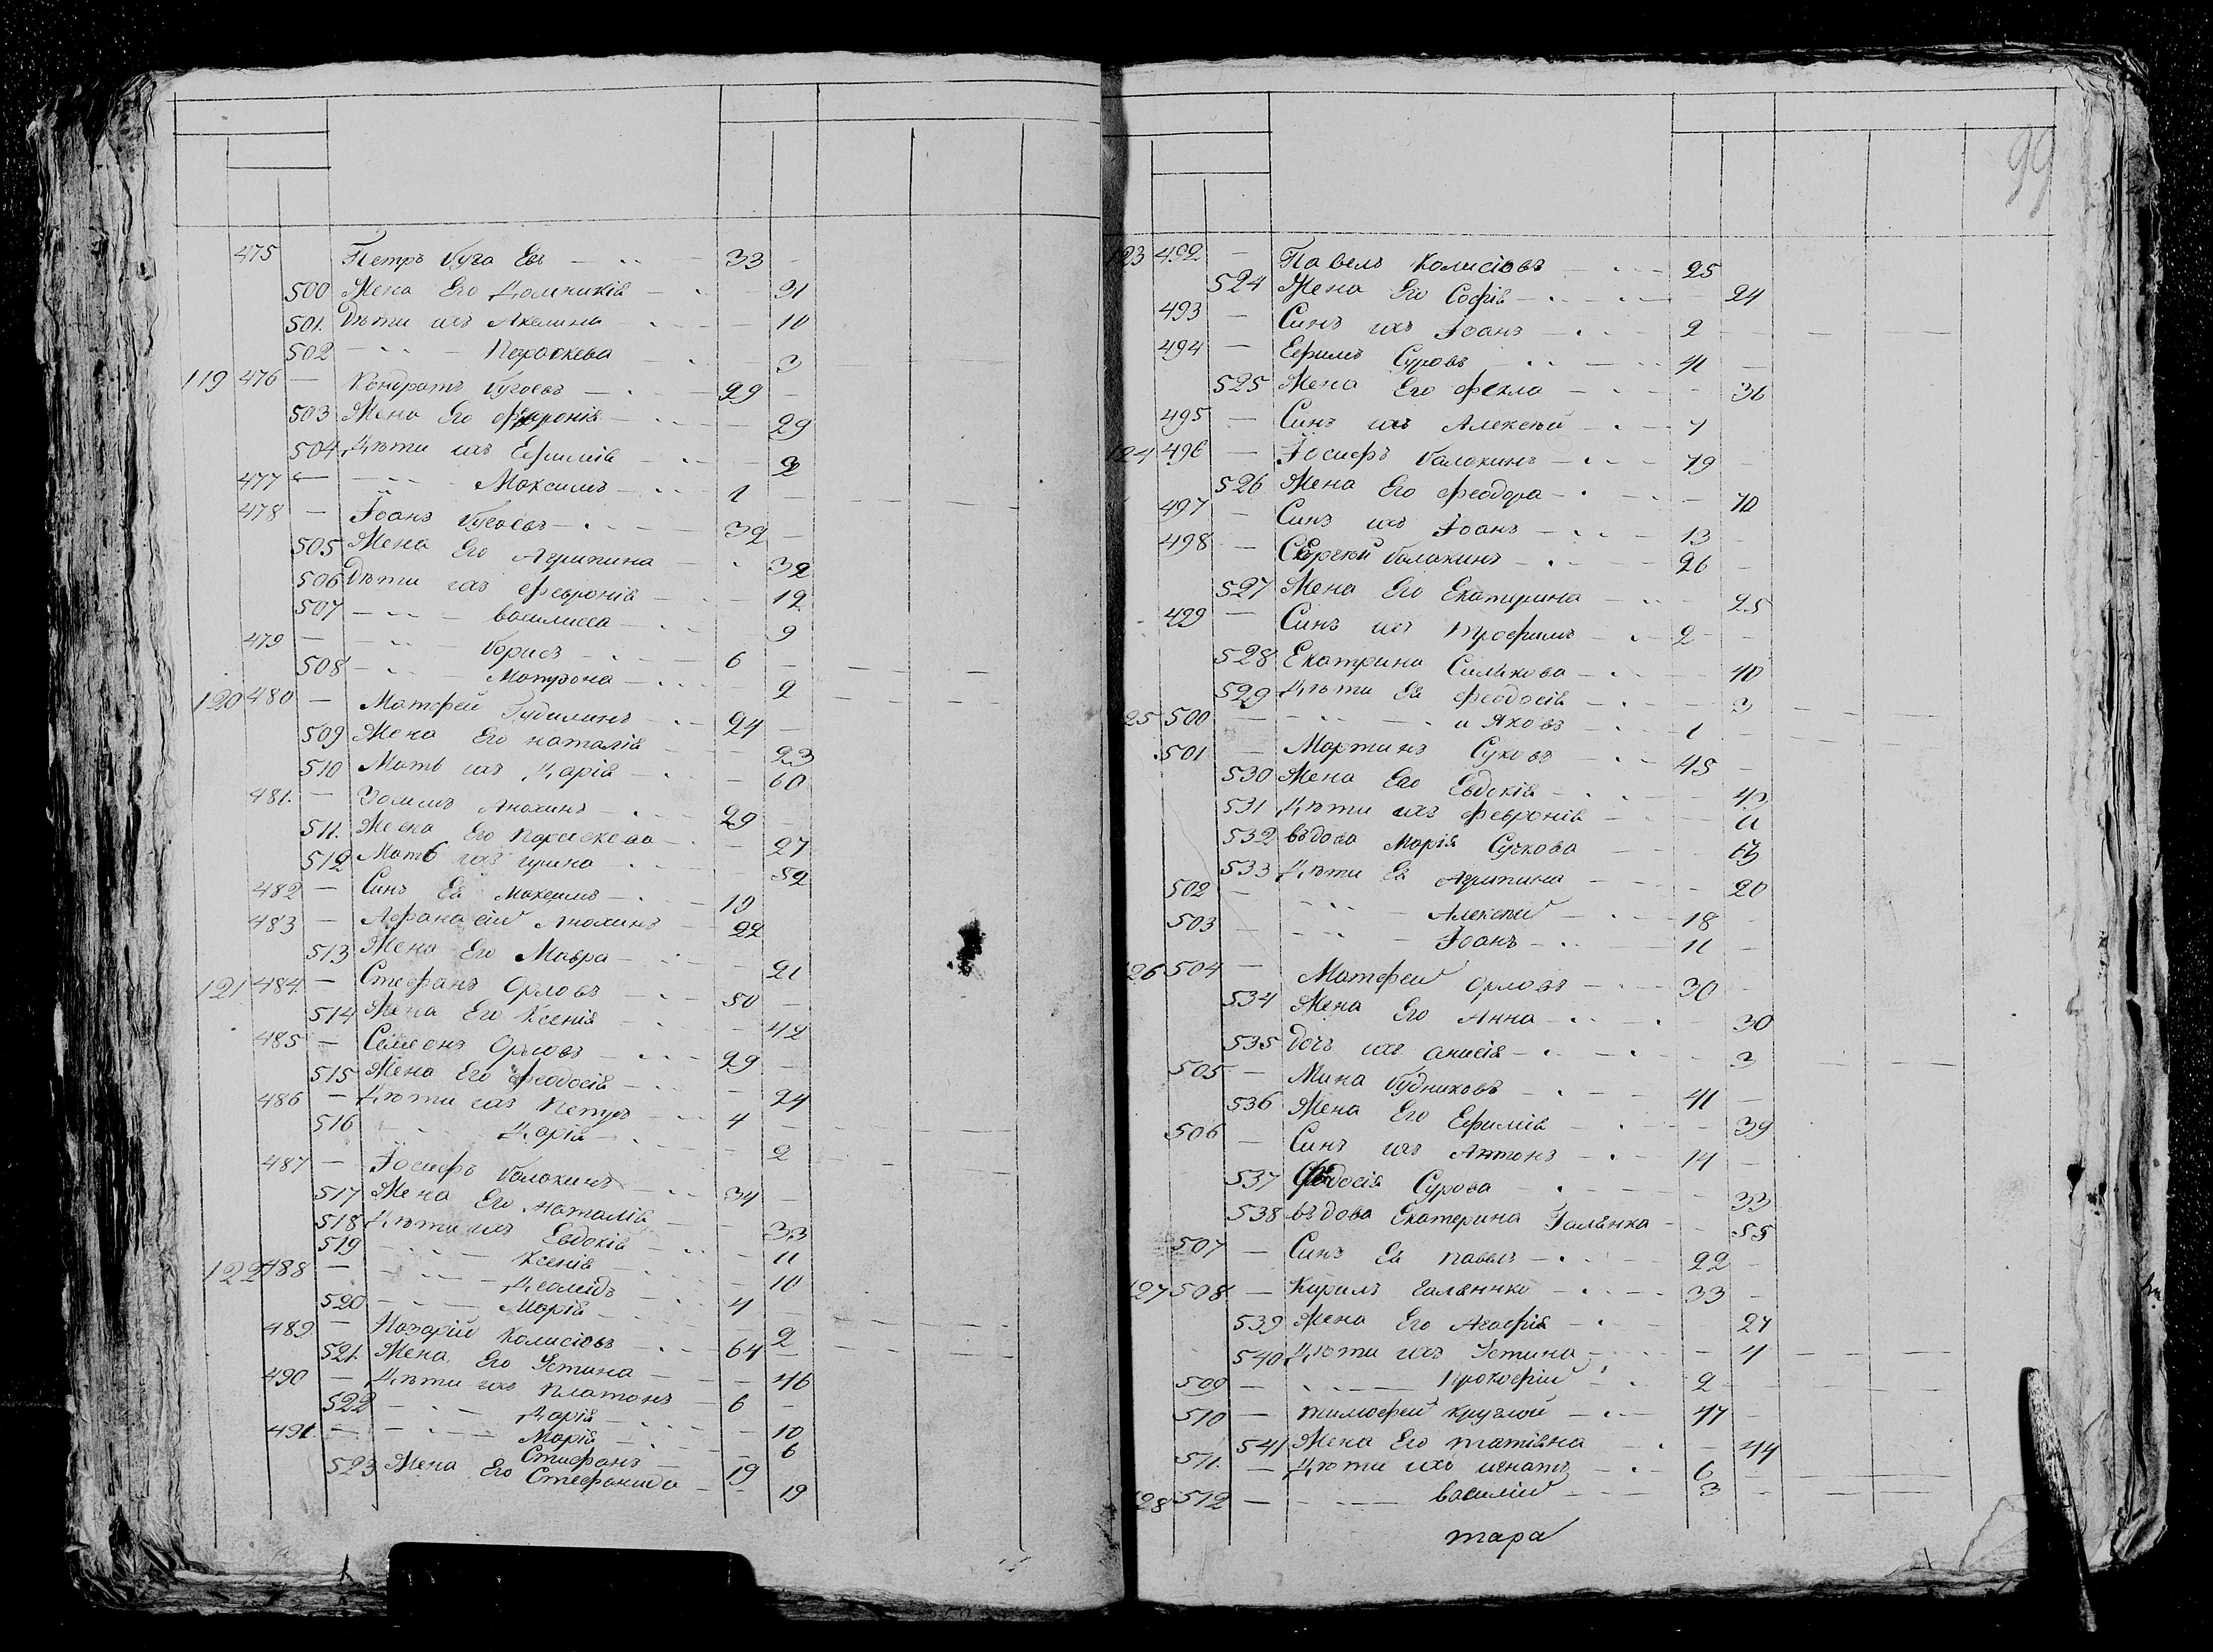 475 Петръ Буга Евъ 33
500 Жена Его Домникія 31
501. Дѣти ихъ Акелина 10
502 Пераскева 3
119 476 Кондратъ Бугаевъ 29
503 Жена Его Февронія 29
504 Дѣти ихъ Ефимія 2
477 Максимъ 1
478 Іоанъ Бугаевъ 32
505 Жена Его Агрипина 32
506 Дѣти ихъ Февронія 12
507 Василисса 9
479 Борисъ 6
508 Матрона 2
120 480 Матфей Гудилинъ 24
509 Жена Его Наталія 23
510 Мать ихъ Дарія 60
481. Зосимъ Анохинъ 29
511. Жена Его Параскева 27
512 Мать ихъ 52
482 Синъ Ея Максимъ 10
483 Афанасій Анохинъ 22
513 Жена Его Мавра 21
121 484 Стефанъ Орловъ 50
514 Жена Его Ксенія 42
485 Семенъ Орловъ 29
515 Жена Его Феодосія 24
486 Дѣти ихъ Петръ 4
516 Дарія 2
487 Іосифъ Балахинъ 34
517 Жена Его Наталія 33
518 Дѣти ихъ Евдокія 11
519 Ксенія 10
122 488 Деомідъ 4
520 Марія 2
489 Назарій Колисіовъ 64
521. Жена Его Устина 46
490 Дѣти ихъ Платонъ 6
522 Дарія 10
Марія 6
491. Стифанъ 19
523 Жена Его Стефанида 19
99
123 492 Павелъ Колисіовъ 25
524 Жена Его Софія 24
493 Синъ ихъ Іоанъ 2
494 Ефимъ Суровъ 41
525 Жена Его Фекла 36
495 Синъ ихъ Алексѣй 7
124 496 Іосифъ Балахинъ 79
526 Жена Его Феодора 70
497 Синъ ихъ Іоанъ 13
498 Сергѣй Балахинъ 26
527 Жена Его Екатерина 25
499 Синъ ихъ Трофимъ 2
528 Екатрина Силакова 40
529 Дѣти Ея Феодосія 3
125 500 и Яковъ 1
501 Мартинъ Суковъ 45
530 Жена Его Евдокія 42
531 Дѣти ихъ Февронія 11
532 Въдова Марія Сучкова
533 Дѣти Ея Агрипина 20
502 Алексѣй 18
503 Іоанъ 11
126 504 Матфей Орловъ 30
534 Жена Его Анна 30
535 Дочъ ихъ Анисія 3
505 Мина Будниковъ 41
536 Жена Его Ефимія 39
506 Синъ ихъ Антонъ 14
537 Феодосія Сурова 33
538 Въдова Екатерина Галянка 55
507 Синъ Ея Павелъ 22
127 508 Кирилъ Галянко 33
539 Жена Его Агафія 27
540 Дѣти ихъ Устина 4
509 Прокофій 2
510 Тимофей Круглой 47
541 Жена Его Татіяна 44
511. Дѣти ихъ Игнатъ 6
128 512 Василій 3
тара